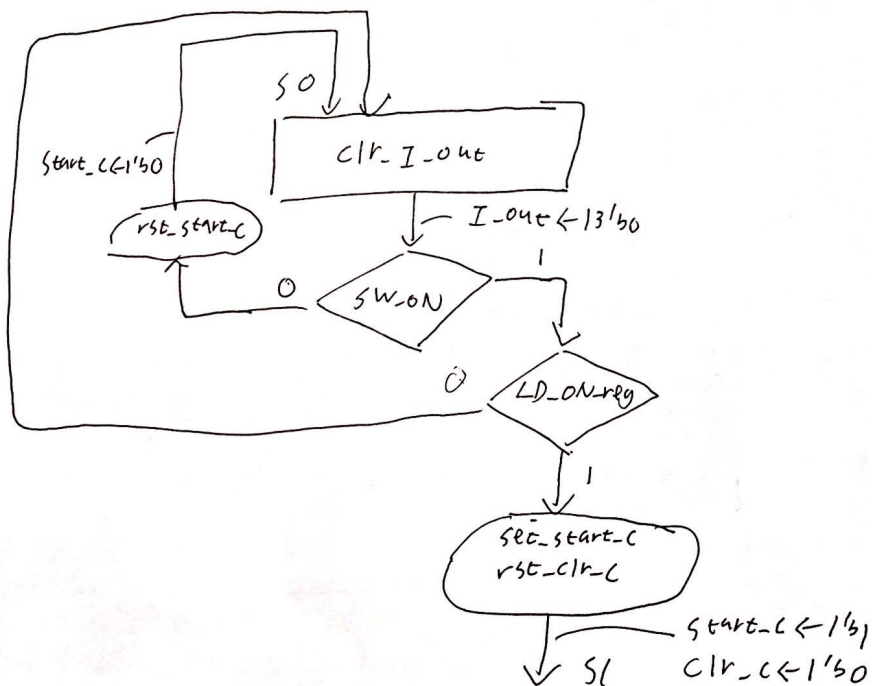 S0
clr_I_out
start_c←1'b0
rst_start_c
I_out←13'b0
0
SW_ON
1
0
LD_ON_reg
1
set_start_c
rst_clr_c
start_c←1'b1
S1
clr_c←1'b0